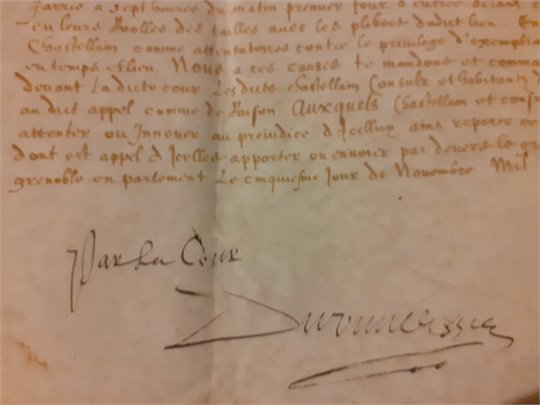 Jarrie a sept heures du matin premier jour d'entree
en leurs Roolles des tailles avec les plebees dudit lieu. En
Chastellain comme attentatoires contre le privilege d'exemption
en temps et lieu, Nous a ces causes te mandons et comma
devant Ladite cour Lesdits Chastellain Consulz et habitantz d
audit appel comme de Raison Auxquels Chastellain et consu
attenter ou Innover au prejudice d Icelluy ains reparer ce
dont est appel d Icelles apporter ou envoier par devers le gre
grenoble en parlement Le cinquiesme Jour de Novembre Mil
Par La Cour